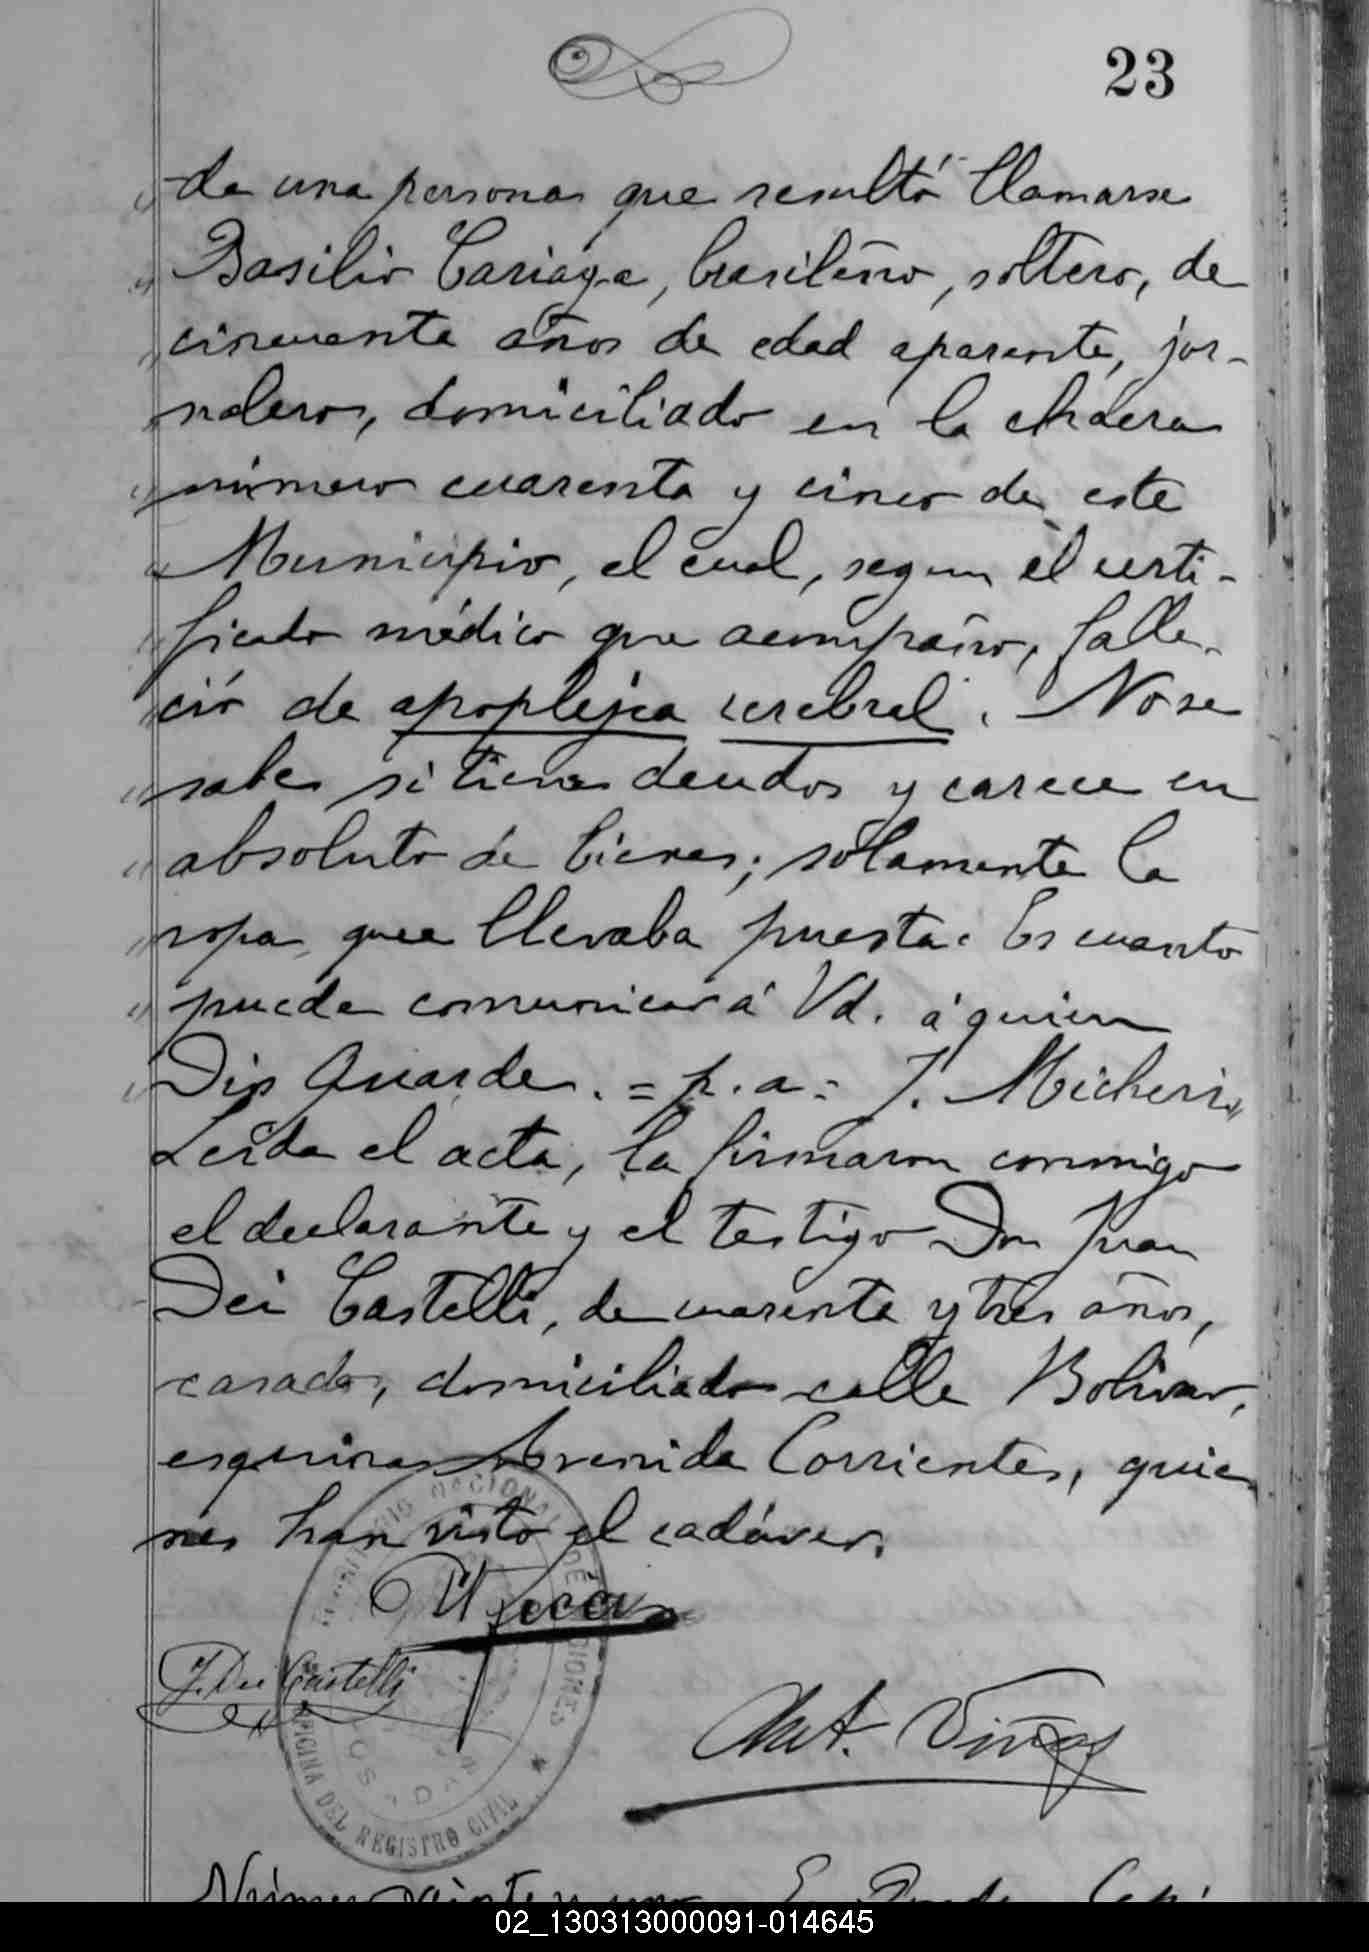 23
" de una persona que resultó llamarse
" Basilio Cariaga, brasileño, soltero, de
" cincuenta años de edad aparente, jor-
" nalero, domiciliado en la chacra
" número cuarenta y cinco de este
" Municipio, el cual, segun el certi-
" ficado médico que acompaño, falle-
" ció de apoplejia cerebral. No se
" sabe si tiene deudos y carece en
" absoluto de bienes; solamente la
" ropa que llevaba puesta. Es cuanto
" puedo comunicar á Vd. á quien
" Dios Guarde. = p. a = J. Micheri"
Leida el acta, la firmaron conmigo
el declarante y el testigo Don Juan
Dei Castelli, de cuarenta y tres años,
casado, domiciliado calle Bolivar,
esquina Avenida Corrientes, quie-
nes han visto el cadáver.
J. Dei Castelli
Ant. Viñas
NACIONAL DE
MISIONES
OFICINA DEL REGISTRO CIVIL
Número veinte y uno. En Posadas, Capi
02_130313000091-014645